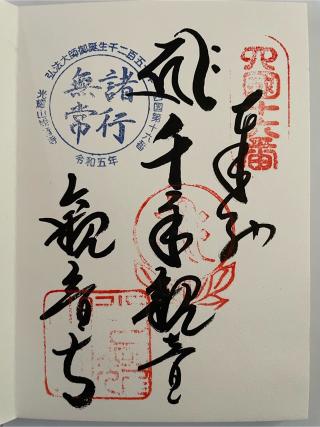 奉納
千手観音
観音寺
四国十六番
弘法大師御誕生千二百五
諸行
無常
令和五年